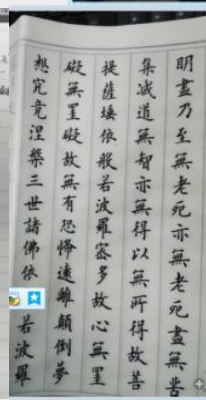 明盡乃至無老死亦無老死盡無苦
集滅道無智亦無得以無所得故菩
提薩埵依般若波羅蜜多故心無罣
礙無罣礙故無有恐怖遠離顛倒夢
想究竟涅槃三世諸佛依若波羅